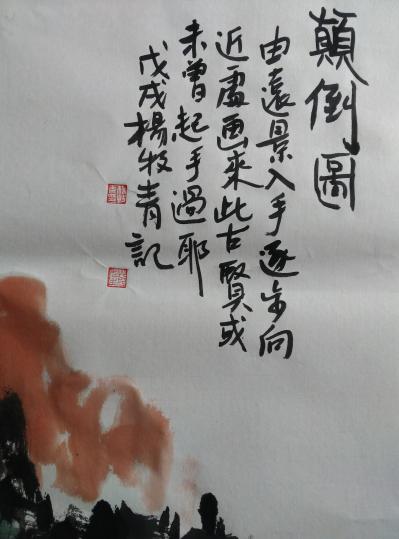 顛倒圖
由遠景入手逐步向
近處画來此古賢或
未曾起手過耶
戊戌楊牧青記